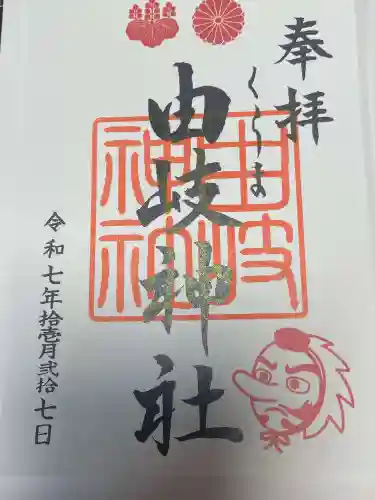 奉拝
くらま
由岐神社
由岐
神社
令和七年拾壱月弐拾七日